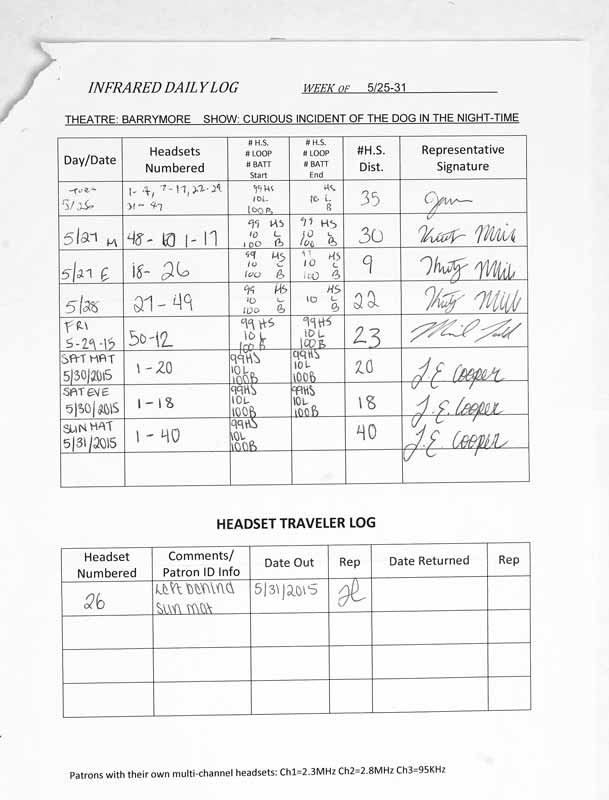 INFRARED DAILY LOG WEEK OF 5/25-31
THEATRE: BARRYMORE SHOW: CURIOUS INCIDENT OF THE DOG IN THE NIGHT-TIME
Day/Date
Headsets
Numbered
# H.S.
# LOOP
# BATT
Start
# H.S.
# LOOP
# BATT
End
#H.S.
Dist.
Representative
Signature
TUES
5/26
99 HS
10L
100B
HS
10 L
B
35
5/27 M
1-17
99 HS
10 L
100 B
99 HS
10 L
100 B
30
5/27 E
18- 26
99 HS
10 L
100 B
HS
10 L
100 B
9
5/28
27 - 49
99 HS
10 L
100 B
HS
10 L
B
22
FRI
5-29-15
50-12
99 HS
10 L
100 B
99 HS
10 L
100B
23
SAT MAT
5/30/2015
1 - 20
99HS
10L
100B
99HS
10L
100B
20
J.E. Cooper
SAT EVE
5/30/2015
1 - 18
99HS
10L
100B
99HS
10L
100B
18
J.E. Cooper
SUN MAT
5/31/2015
1 - 40
99HS
10L
100B
40
J.E. Cooper
HEADSET TRAVELER LOG
Headset
Numbered
Comments/
Patron ID Info
Date Out
Rep
Date Returned
Rep
26
Left behind
sun mat
5/31/2015
Patrons with their own multi-channel headsets: Ch1=2.3MHz Ch2=2.8MHz Ch3=95KHz